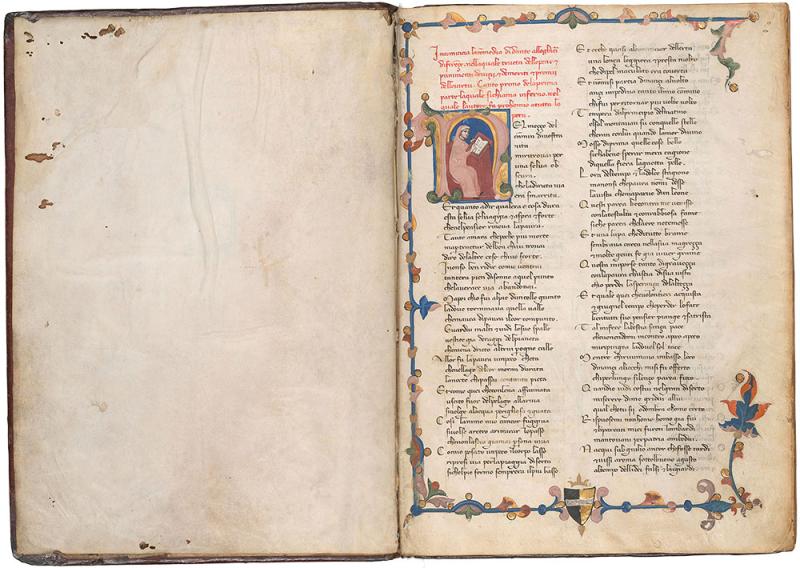 Incomincia lacomedia di dante alleghieri
difirençe nellaquale tracta delle pene et
punimenti devitii et demeriti et premii
dellevirtu. Canto primo dela prima
parte laquale sichiama inferno. nel
quale lautore fa prohemio a tutta lo
pera
NEl meçço del
camin di nostra
vita
mi ritrovai per
una selva ob
scura
che la diritta via
era smarrita
Et quanto a dir qual era e cosa dura
esta selva selvaggia et aspra et forte
che nel pensier rinova la paura
Tanto amara che poco e piu morte
ma per tractar del ben chio vi trovai
diro dellaltre cose chio vo scorte
I non so ben ridir come ventrai
tantera pien di sonno a quel punto
che la verace via abandonai
Ma poi chio fui al pie dun colle giunto
la dove terminava quella valle
che mavea di paura il cor compunto
Guardai in alto et vidi le sue spalle
vestite gia de raggi del pianeta
che mena dritto altrui per ogne calle
Allor fu la paura un poco cheta
che nel lago del cor mera durata
la nocte chio passai con tanta pieta
Et come quei che con lena affannata
uscito fuor del pelago alla riva
si volge alacqua perigliosa et guata
Cosi lanimo mio cancor fuggiva
si volse a retro a rimirar lo passo
che non lascio gia mai persona viva
Come posato un poco il corpo lasso
ripresi via per la piaggia diserta
si chel pie fermo sempre era il piu basso
Et ecco quasi al cominciar dellerta
una lonça leggiera et presta molto
che di pel maculato era coverta
Et non mi si partia dinançi al volto
ançi impediva tanto il mio camino
chi fui per ritornar piu volte volto
Tempera dal principio del matino
el sol montava in su con quelle stelle
cheran con lui quando lamor divino
Mosse di prima quelle cose belle
si cha bene sperar mera cagione
di quella fiera la gaetta pelle
Lora del tempo et la dolce stagione
ma non si che paura non mi desse
la vista che mapparve dun leone
Questi parea che contra me venesse
con la test alta et con rabbiosa fame
si che parea che laere ne temesse
Et una lupa che di tutte brame
sembiava carca nella sua magreçça
et molte genti fe gia viver grame
Questa mi porse tanto di graveçça
con la paura chuscia di sua vista
chio perdei la sperança dellalteçça
Et quale quei che volontieri acquista
et giugnel tempo che perder lo face
che ntutti suo pensier piange et sattrista
Tal mi fece la bestia sença pace
che venendomi incontro a poco a poco
mi ripingeva la dovel sol tace
Mentre chi rovinava in basso loco
dinançi alli occhi mi si fu offerto
chi per lungo silençio parea fioco
Quando vidi costui nel gran diserto
miserere di me gridai allui
qual che tu sii od ombra o homo certo
Rispuosemi non homo homo gia fui
et li parenti miei furon lombardi
mantovani per patria amendui
Nacqui sub giulio ancor che fosse tardi
et vissi a roma sottol buono agusto
al tempo delli dei falsi et bugiardi